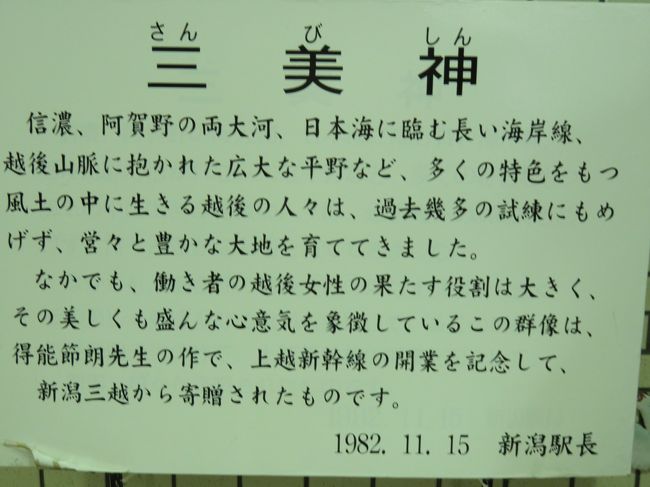 さん び しん
三 美 神
信濃、阿賀野の両大河、日本海に臨む長い海岸線、
越後山脈に抱かれた広大な平野など、多くの特色をもつ
風土の中に生きる越後の人々は、過去幾多の試練にもめ
げず、営々と豊かな大地を育ててきました。
なかでも、働き者の越後女性の果たす役割は大きく、
その美しくも盛んな心意気を象徴しているこの群像は、
得能節朗先生の作で、上越新幹線の開業を記念して、
新潟三越から寄贈されたものです。
1982. 11. 15 新潟駅長